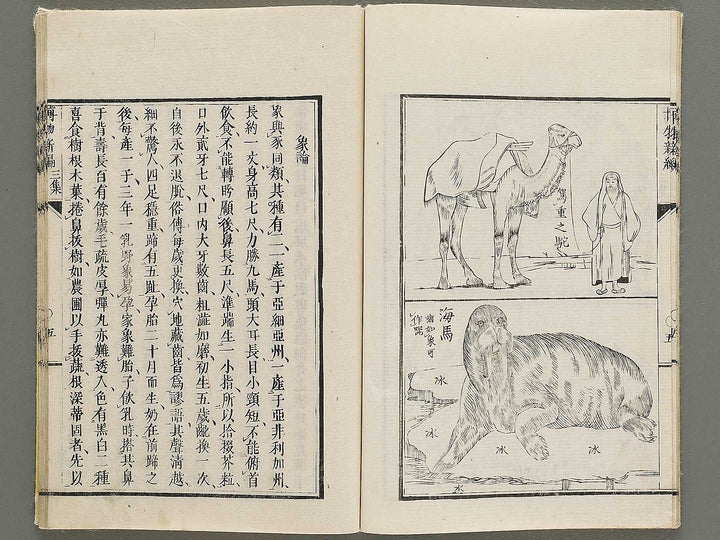 博物新編
駕重之駝
海馬
齒如象可
作器
冰
冰
冰
冰
水
五
象論
象與豕同類其種有二一產于亞細亞州一產于亞非利加州
長約一丈身高七尺力勝九馬頭大耳長目小頸短不能俯首
飲食不能轉盻顧後鼻長五尺準端生一小指所以拾掇芥粒
口外貳牙七尺口內大牙數齒粗澁如磨初生五歲齔換一次
自後永不退脫俗傳每歲更換穴地藏齒皆為謬語其聲清越
細不驚人四足穩重蹄有五趾孕胎二十月而生奶在前蹄之
後每產一子三年一乳野象易孕家象難胎子飲乳時搭其鼻
于背壽長百有餘歲毛疏皮厚彈丸亦難透入色有黑白二種
喜食樹根木葉捲鼻拔樹如農圃以手拔蔬根深蒂固者先以
博物新編
三集
五